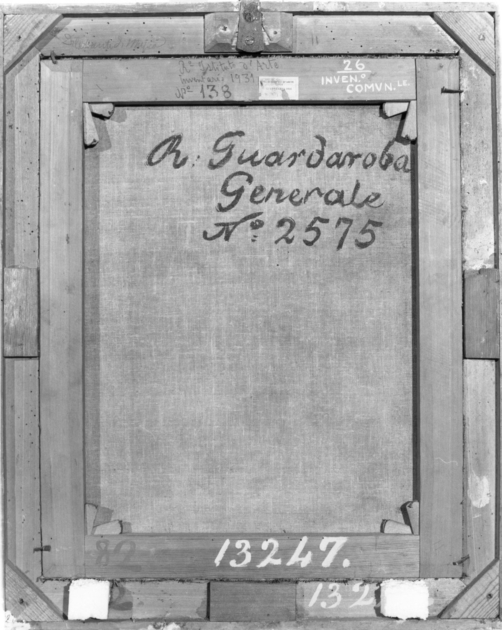 1931
Nº 138
26
INVEN.º
COMVN.LE.
R. Guardaroba
Generale
Nº 2575
82
13247.
2
132